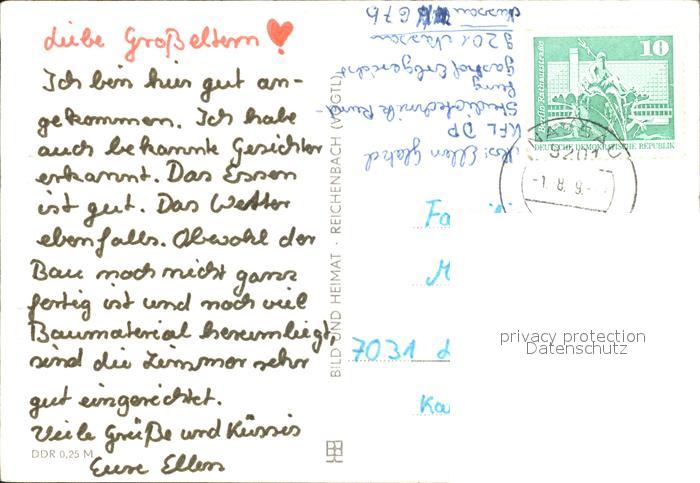 Liebe Großeltern
Ich bin hier gut an-
gekommen. Ich habe
auch bekannte Gesichter
erkannt. Das Essen
ist gut. Das Wetter
ebenfalls. Obwohl der
Bau noch nicht ganz
fertig ist und noch viel
Baumaterial herumliegt,
sind die Zimmer sehr
gut eingerichtet.
Viele Grüße und Küssis
Eure Ellen
DDR 0,25 M
BILD UND HEIMAT · REICHENBACH (VOGTL)
Abs: Ellen
KFL DP
Studiotechnik Rund-
funk
Gasthof Erbgericht
9201 Nassau
10
Berlin, Rathausstraße
DEUTSCHE DEMOKRATISCHE REPUBLIK
NASSAU
9201
-1. 8. 9.
Fa
M
7031
Ka
privacy protection
Datenschutz